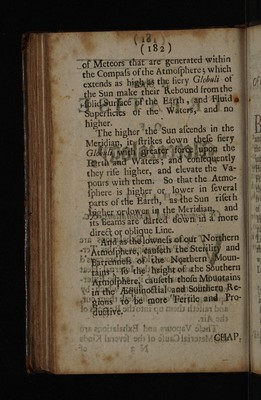 (182)
of Meteors that are generated within
the Compass of the Atmosphere; which
extends as high as the fiery Globuli of
the Sun make their Rebound from the
solid Surface of the Earth, and Fluid
Superficies of the Waters, and no
higher.
The higher the Sun ascends in the
Meridian, it strikes down these fiery
Globuli with greater force upon the
Earth and Waters; and consequently
they rise higher, and elevate the Va-
pours with them. So that the Atmo-
sphere is higher or lower in several
parts of the Earth, as the Sun riseth
higher or lower in the Meridian, and
its beams are darted down in a more
direct or oblique Line.
And as the lowness of our Northern
Atmosphere, causeth the Sterility and
Barrenness of the Northern Moun-
tains; so the height of the Southern
Atmosphere, causeth those Mountains
in the Æquinoctial and Southern Re-
gions to be more Fertile and Pro-
ductive.
CHAP.